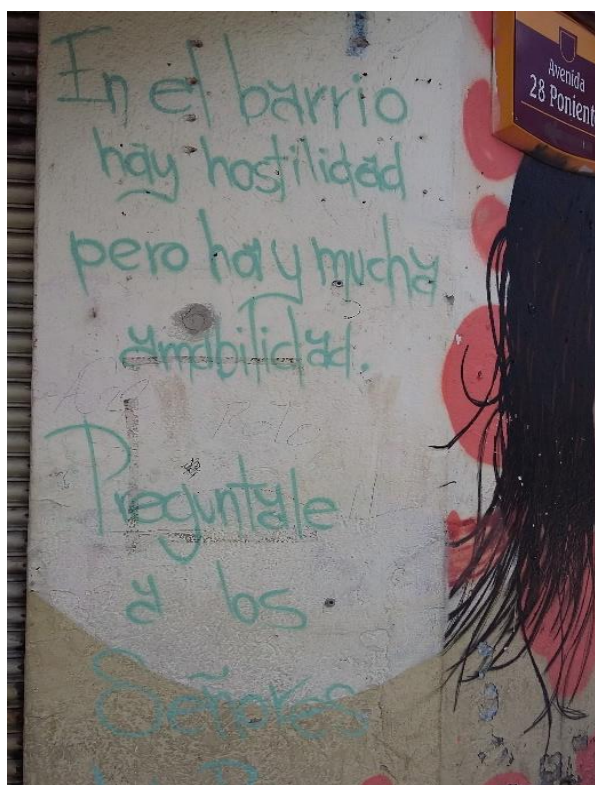 In el barrio
hay hostilidad
pero hay mucha
amabilidad.
Preguntale
a los
Señores
Avenida
28 Ponient